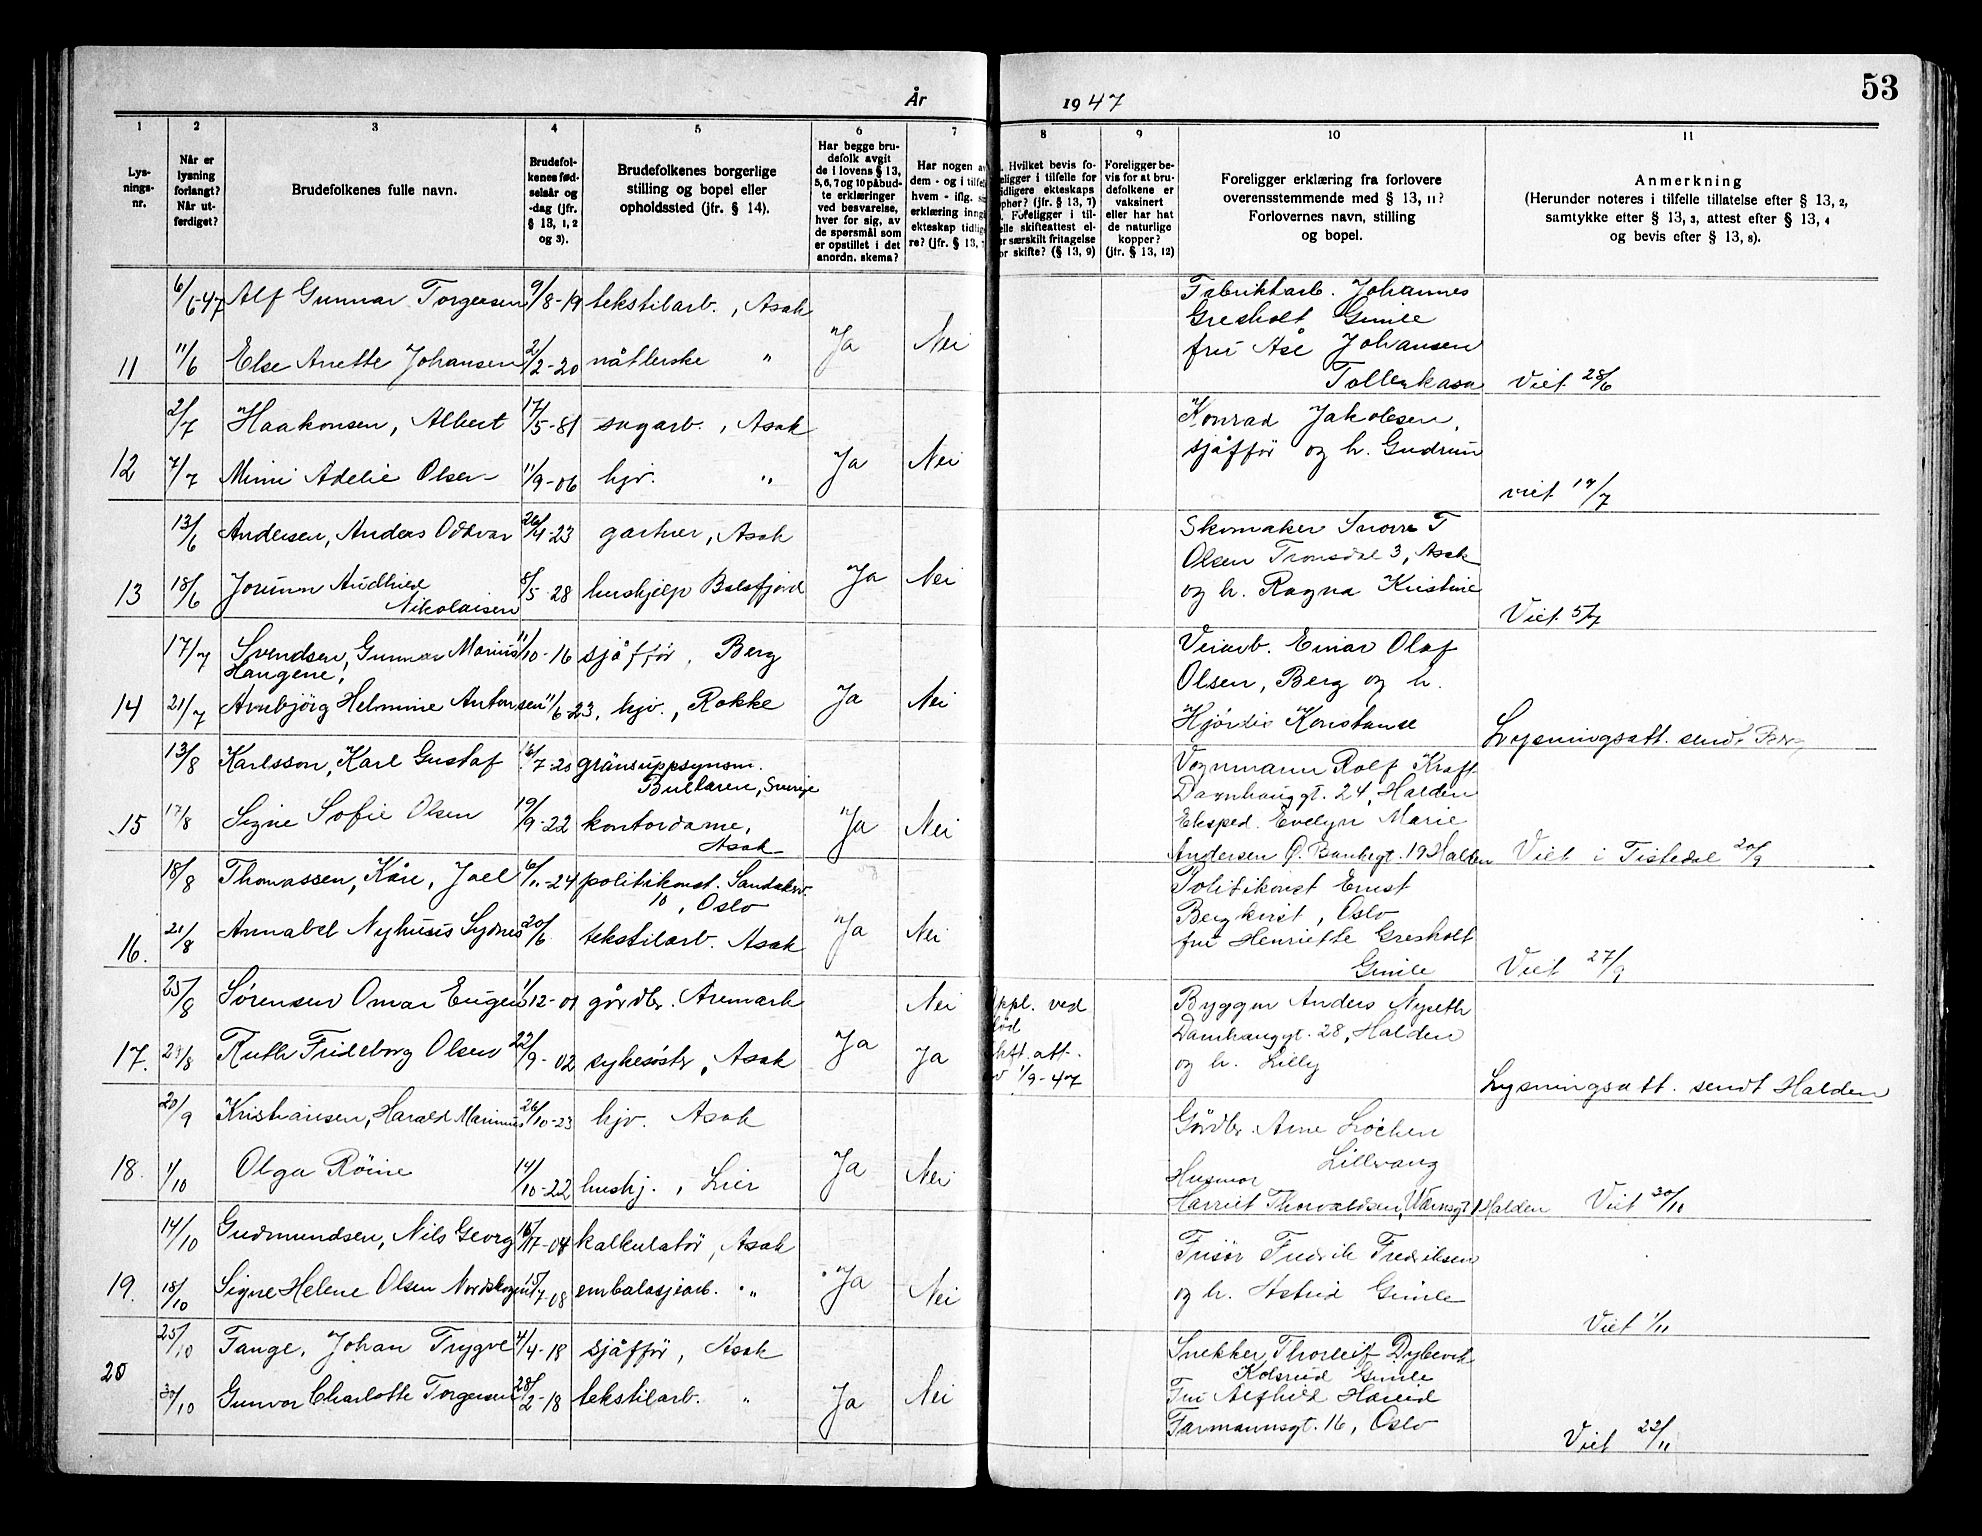 År 1947
53
1 2 3 4 5 6 7 8 9 10 11
Lys-
nings-
nr.
Når er
lysning
forlangt?
Når ut-
ferdiget?
Brudefolkenes fulle navn.
Brudefol-
kenes fød-
selsår og
-dag (jfr.
§ 13, 1, 2
og 3).
Brudefolkenes borgerlige
stilling og bopel eller
opholdssted (jfr. § 14).
Har begge bru-
defolk avgit
de i lovens § 13,
5, 6, 7 og 10 påbud-
te erklæringer
ved besvarelse,
hver for sig, av
de spørsmål som
er opstillet i det
anordn. skema?
Har nogen av
dem - og i tilfel
hvem - iflg.
erklæring inng
ekteskap tidlig
re? (jfr. § 13,
Hvilket bevis fo-
religger i tilfelle for
tidligere ekteskaps
opphør? (jfr. § 13, 7)
Foreligger i til-
felle skifteattest el-
er særskilt fritagelse
or skifte? (§ 13, 9)
Foreligger be-
vis for at bru-
defolkene er
vaksinert
eller har hat
de naturlige
kopper?
(jfr. § 13, 12)
Foreligger erklæring fra forlovere
overensstemmende med § 13, 11?
Forlovernes navn, stilling
og bopel.
Anmerkning
(Herunder noteres i tilfelle tillatelse efter § 13, 2,
samtykke efter § 13, 3, attest efter § 13, 4
og bevis efter § 13, 8).
6/6-47 Alf Gunnar Torgersen 9/8-19 tekstilarb., Asak
11 11/6 Else Anette Johansen 2/2-20 nåtlerske " Ja Nei
Fabrikkarb. Johannes
Gresholt Gimle
fru Åse Johansen
Vief 28/6
2/7 Haakonsen, Albert 17/5-81 sagarb., Asak
12 7/7 Mimi Adelie Olsen 11/9-06 hjv. " Ja Nei
Konrad Jakobsen,
sjåffør og h. Gudrun
viet 19/7
13/6 Andersen, Anders Oddvar 26/4-23 gartner, Asak
13 18/6 Jorunn Audhild
Nikolaisen 8/5-28 hushjelp Balsfjord Ja Nei
Skomaker Snorre T
Olsen Tronsdal 3, Asak
og h. Ragna Kristine
Viet 5/7
17/7 Svendsen, Gunnar Marius 11/10-16 sjåffør, Berg
Haugene,
14 21/7 Arnbjörg Helmine Antonsen 11/6-23, hjv., Rokke Ja Nei
Veiarb. Einar Olaf
Olsen, Berg og h.
Hjördis Konstanse
Lysningsatt. sendt Berg
13/8 Karlsson, Karl Gustaf 16/7-20 gränsuppsynsm.
Bullaren, Sverige
15 17/8 Signe Sofie Olsen 19/9-22 kontordame,
Asak Ja Nei
Vognmann Rolf Kraft
Damhauggt. 24, Halden
Eksped. Evelyn Marie
Andersen Ø. Bankegt. 19 Halden Viet i Tistedal 20/9
18/8 Thomassen, Kåre, Joel 6/11-24 politikonst. Sandakerv.
10, Oslo
16. 21/8 Annabel Nyhusis Sydnes 20/6 tekstilarb. Asak Ja Nei
Politikonst Ernst
Bergkvist, Oslo
fru Henriette Gresholt
Gimle
Viet 27/9
25/8 Sørensen Omar Eugen 1/12-01 gårdbr. Aremark Nei
17. 28/8 Ruth Frideborg Olsen 22/9-02 sykesøster, Asak Ja Ja
ppl. ved
død
kft. att.
1/9-47
Byggm Anders Nyseth
Damhauggt. 28, Halden
og h. Lilly
Lysningsatt. sendt Halden
20/9 Kristiansen, Harald Marinus 26/10-23 hjv. Asak
18. 1/10 Olga Röine 14/10-22 hushj., Lier Ja Nei
Gårdbr Arne Löchen
Lillevang
Husmor
Harriet Thorvaldsen, Værnsgt 1 Halden Viet 30/11
14/10 Gudmundsen, Nils Georg 16/7-04 kalkulatör, Asak
19. 18/10 Signe Helene Olsen Nordskogen 15/7-08 embalasjearb. " Ja Nei
Frisör Fredrik Fredriksen
og h. Astrid Gimle
Viet 1/11
25/10 Tange, Johan Trygve 4/4-18 sjåffør, Asak
20 30/10 Gunvor Charlotte Torgersen 28/2-18 tekstilarb. " Ja Nei
Snekker Thorleif Dybevik
Kolsrud Gimle
Fru Alfhild Hareid
Farmannsgt. 16, Oslo
Viet 22/11